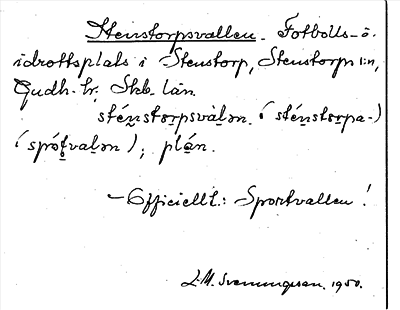 Stenstorpsvallen. Fotbolls- o.
idrottsplats i Stenstorp, Stenstorp l:n,
Gudh. hr, Skb. län.
sténstorpsvàlən. (sténstorpa-)
(spórtvalən); plán.
– Officiellt: Sportvallen!
L.M. Svenungsson. 1950.